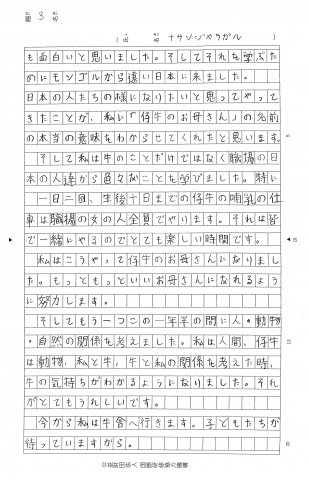 3
ナサンジャラガル
も面白いと思いました。そしてそれを学ぶた
めにモンゴルから遠い日本に来ました。
日本の人たちの様になりたいと思ってやって
きたことが、私に「仔牛のお母さん」の名前
の本当の意味をわからせてくれたと思います。
そして私は牛のことだけではなく職場の日
本の人達から色々なことを学びました。特に
一日二回、生後十日までの仔牛の哺乳の仕
事は職場の女の人全員でやります。それは皆
で一緒にやるのでとても楽しい時間です。
私はこうやって仔牛のお母さんになりまし
た。もっともっといいお母さんになれるよう
に努力します。
そしてもう一つこの一年半の間に人・動物
・自然の関係を考えました。私は人間、仔牛
は動物、私と牛、牛と私の関係を考えた時、
牛の気持ちがわかるようになりました。それ
がとてもうれしいです。
今から私は牛舎へ行きます。子どもたちが
待っていますから。